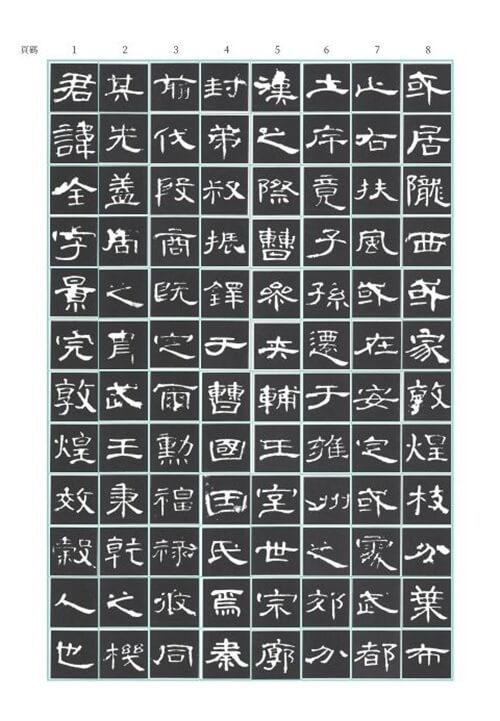 頁碼 1 2 3 4 5 6 7 8
君諱全字景完敦煌效穀人也
其先蓋周之胄武王秉乾之機
翦伐殷商既定爾勳福祿攸同
封弟叔振鐸于曹國因氏焉秦
漢之際曹參夾輔王室世宗廓
土斥竟子孫遷于雍州之郊分
止右扶風或在安定或處武都
或居隴西或家敦煌枝分葉布